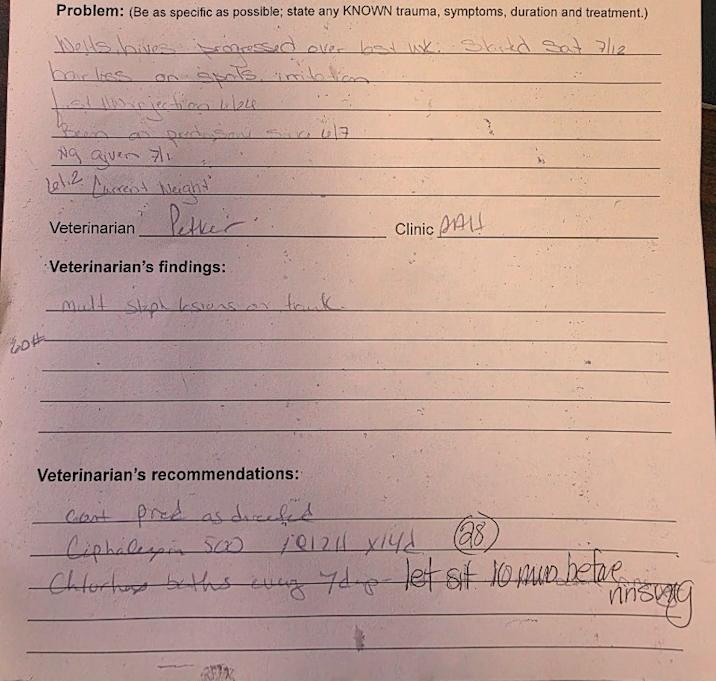 Problem: (Be as specific as possible; state any KNOWN trauma, symptoms, duration and treatment.)
hives progressed over last wk. Started Sat 7/12
hairless on spots, irritation
injection 6/24
Been on since 6/7
given 7/1
61.2 Current Weight
Veterinarian Petker Clinic AAH
Veterinarian's findings:
mult staph lesions on trunk
60#
Veterinarian's recommendations:
cont pred as directed
Ciphalexin 500 1Q12H x14d 28
Chlorhex baths every 7days - let sit 10 min before
rinsing